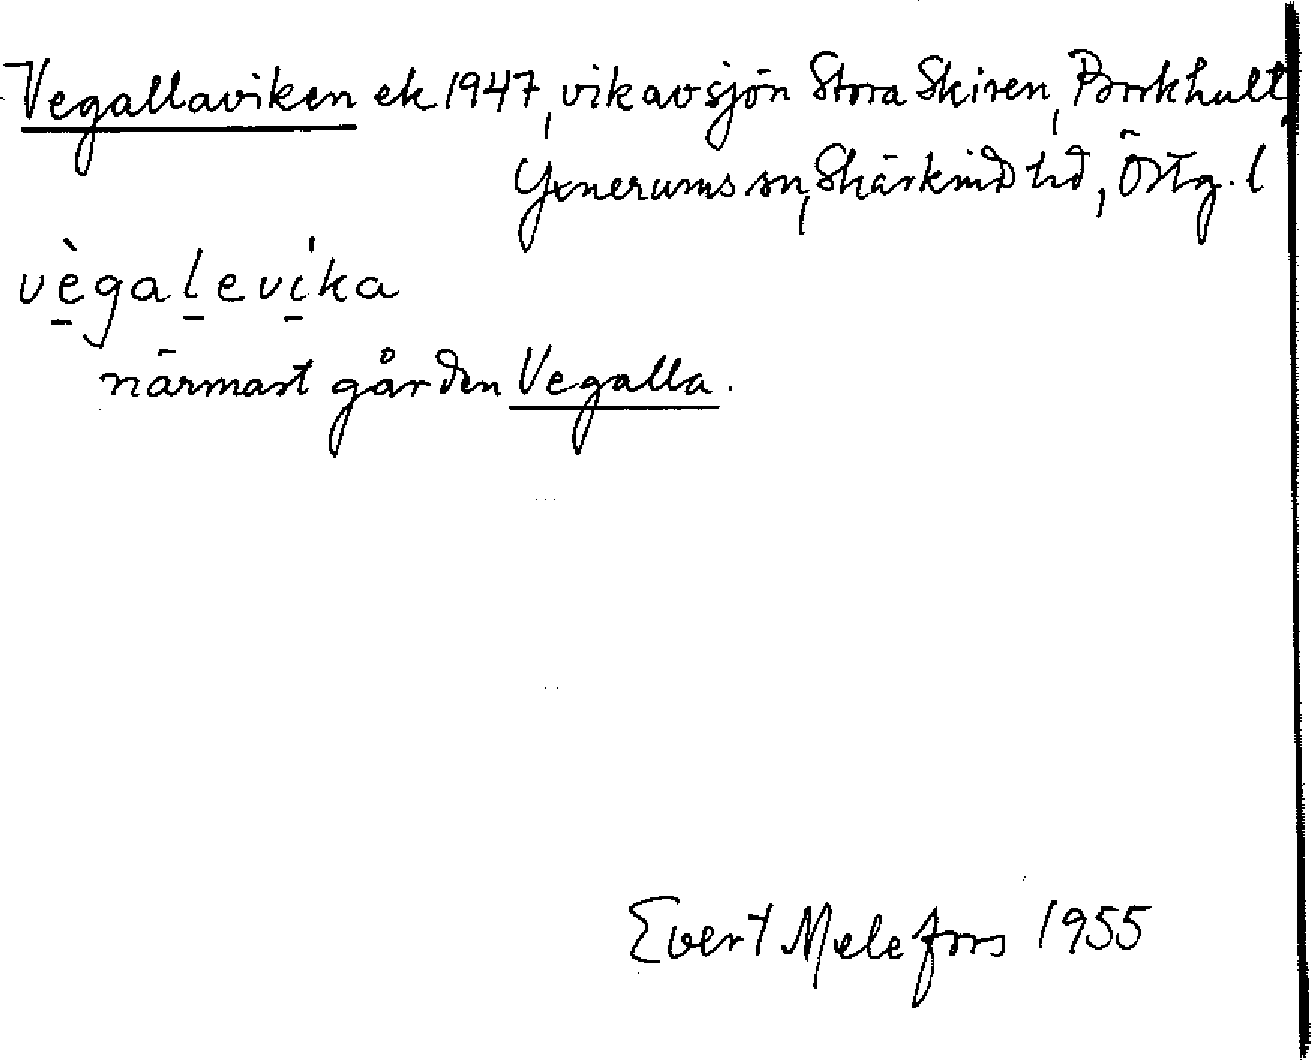 Vegallaviken ek 1947, vik av sjön Stora Skiren, Borkhult,
Yxnerums sn, Skärkind hd, Östg. l
vègalevíka
närmast gården Vegalla.
Evert Melefors 1955